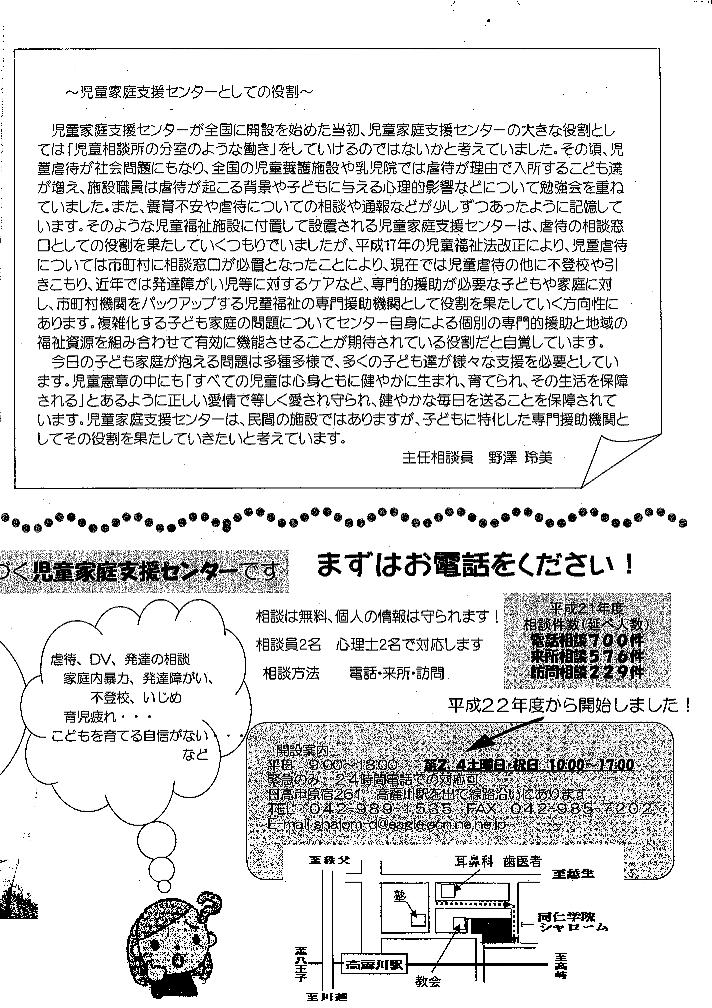 ～児童家庭支援センターとしての役割～
児童家庭支援センターが全国に開設を始めた当初、児童家庭支援センターの大きな役割とし
ては「児童相談所の分室のような働き」をしていけるのではないかと考えていました。その頃、児
童虐待が社会問題にもなり、全国の児童養護施設や乳児院では虐待が理由で入所するこども達
が増え、施設職員は虐待が起こる背景や子どもに与える心理的影響などについて勉強会を重ね
ていました。また、養育不安や虐待についての相談や通報などが少しずつあったように記憶して
います。そのような児童福祉施設に付置して設置される児童家庭支援センターは、虐待の相談窓
口としての役割を果たしていくつもりでいましたが、平成17年の児童福祉法改正により、児童虐待
については市町村に相談窓口が必置となったことにより、現在では児童虐待の他に不登校や引
きこもり、近年では発達障がい児等に対するケアなど、専門的援助が必要な子どもや家庭に対
し、市町村機関をバックアップする児童福祉の専門援助機関として役割を果たしていく方向性に
あります。複雑化する子ども家庭の問題についてセンター自身による個別の専門的援助と地域の
福祉資源を組み合わせて有効に機能させることが期待されている役割だと自覚しています。
今日の子ども家庭が抱える問題は多種多様で、多くの子ども達が様々な支援を必要としてい
ます。児童憲章の中にも「すべての児童は心身ともに健やかに生まれ、育てられ、その生活を保障
される」とあるように正しい愛情で等しく愛され守られ、健やかな毎日を送ることを保障されて
います。児童家庭支援センターは、民間の施設ではありますが、子どもに特化した専門援助機関と
してその役割を果たしていきたいと考えています。
主任相談員 野澤 玲美
づく児童家庭支援センターです
まずはお電話をください！
相談は無料、個人の情報は守られます！
相談員2名 心理士2名で対応します
相談方法 電話・来所・訪問
平成21年度
相談件数(延べ人数)
電話相談700件
来所相談576件
訪問相談229件
虐待、DV、発達の相談
家庭内暴力、発達障がい、
不登校、いじめ
育児疲れ・・・
こどもを育てる自信がない・・・
など
平成22年度から開始しました！
開設案内
平日 9:00～18:00 第2，4土曜日・祝日 10:00～17:00
緊急のみ 24時間電話での対応可
日高市原宿261 高麗川駅を出て線路沿いにあります
TEL 042-989-1535 FAX 042-985-7202
至秩父
耳鼻科 歯医者
至越生
塾
同仁学院
シャローム
至八王子
高麗川駅
教会
至高崎
至川越